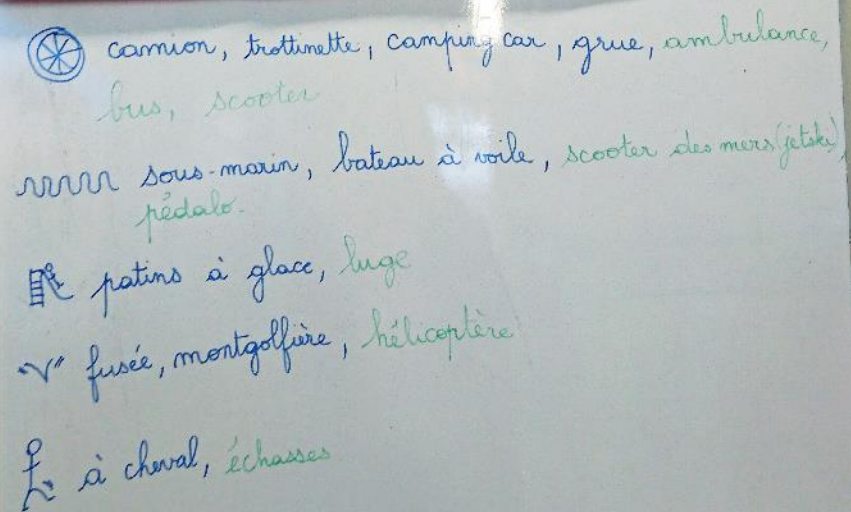 camion, trottinette, camping car, grue, ambulance,
bus, scooter
sous-marin, bateau à voile, scooter des mers (jetski),
pédalo.
patins à glace, luge
fusée, montgolfière, hélicoptère
à cheval, échasses